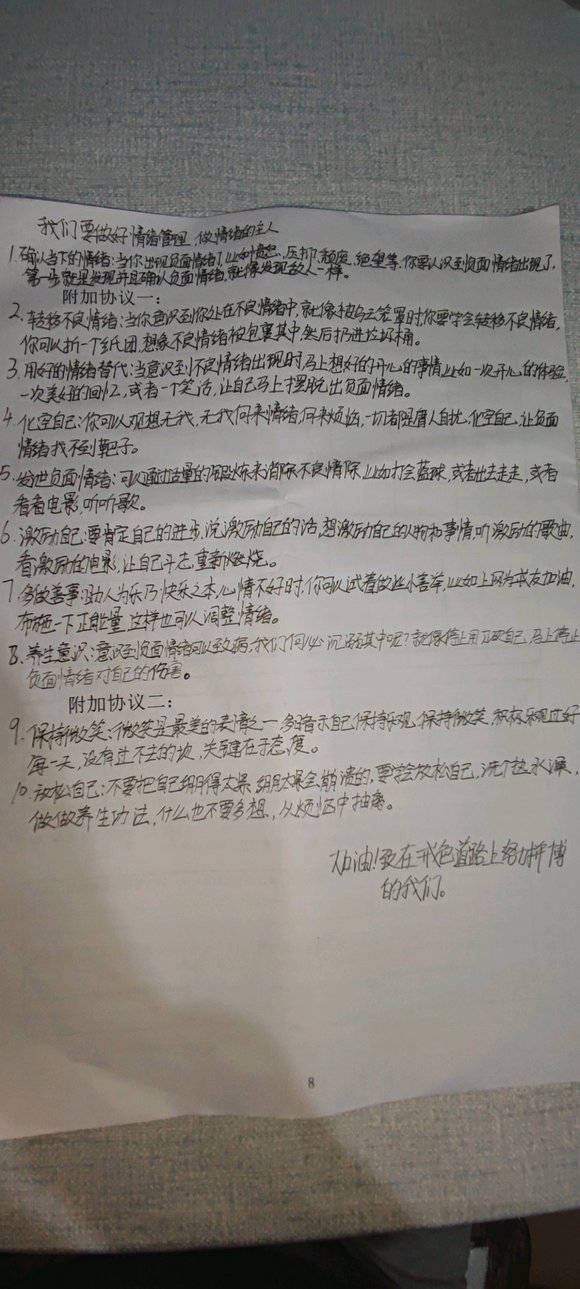 我们要做好情绪管理,做情绪的主人
1.确认当下的情绪:当你出现负面情绪了,比如愤怒,压抑,颓废,绝望等,你要认识到负面情绪出现了,
第一步就是发现并且确认负面情绪,就像发现敌人一样。
附加协议一:
2.转移不良情绪:当你意识到你处在不良情绪中,就像被乌云笼罩时你要学会转移不良情绪,
你可以折一个纸团,想象不良情绪被包裹其中,然后扔进垃圾桶。
3.用好的情绪替代:当意识到不良情绪出现时,马上想好的开心的事情,比如一次开心的体验,
一次美好的回忆,或者一个笑话,让自己马上摆脱出负面情绪。
4.化空自己:你可以观想无我,无我何来情绪,何来烦恼,一切都是庸人自扰,化空自己,让负面
情绪找不到靶子。
5.发泄负面情绪:可以通过适量的锻炼来消除不良情除,比如打会蓝球,或者出去走走,或者
看看电影,听听歌。
6.激励自己:要肯定自己的进步,说激励自己的话,想激励自己的人物和事情,听激励的歌曲,
看激励的电影,让自己斗志重新燃烧。
7.多做善事:助人为乐乃快乐之本,心情不好时,你可以试着做些小善举,比如上网为戒友加油,
布施一下正能量,这样也可以调整情绪。
8.养生意识:意识到负面情绪可以致病,我们何必沉溺其中呢?就像停止用刀砍自己,马上停止
负面情绪对自己的伤害。
附加协议二:
9.保持微笑:微笑是最美的表情之一,多暗示自己保持乐观,保持微笑,积极乐观过好
每一天,没有过不去的坎,关键在于态度。
10.放松自己:不要把自己绷得太紧,绷太紧会崩溃的,要学会放松自己,洗个热水澡,
做做养生功法,什么也不要多想,从烦恼中抽离。
加油!致在戒色道路上努力拼搏
的我们。
8